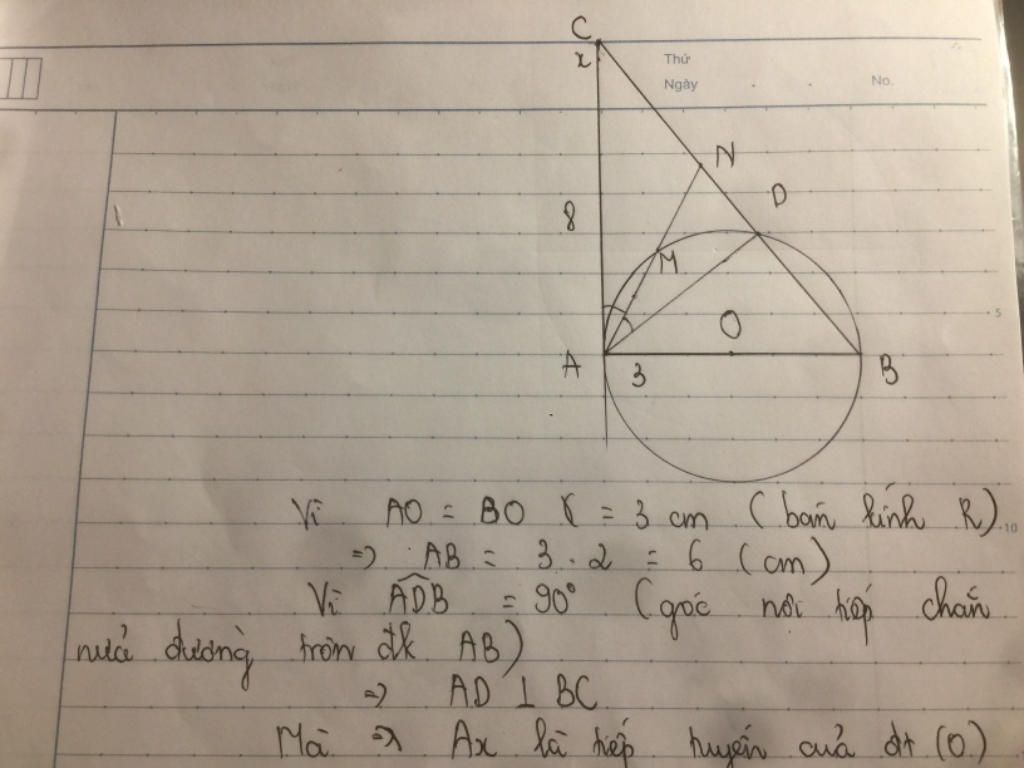 C
x
Thứ
Ngày
No.
N
D
8
M
5
O
A
3
B
Vì AO = BO = 3 cm (bán kính R)
10
=> AB = 3 . 2 = 6 (cm)
Vì ADB = 90° (góc nội tiếp chắn
nửa đường tròn đk AB)
=> AD ⊥ BC
Mà => Ax là tiếp tuyến của đt (O)